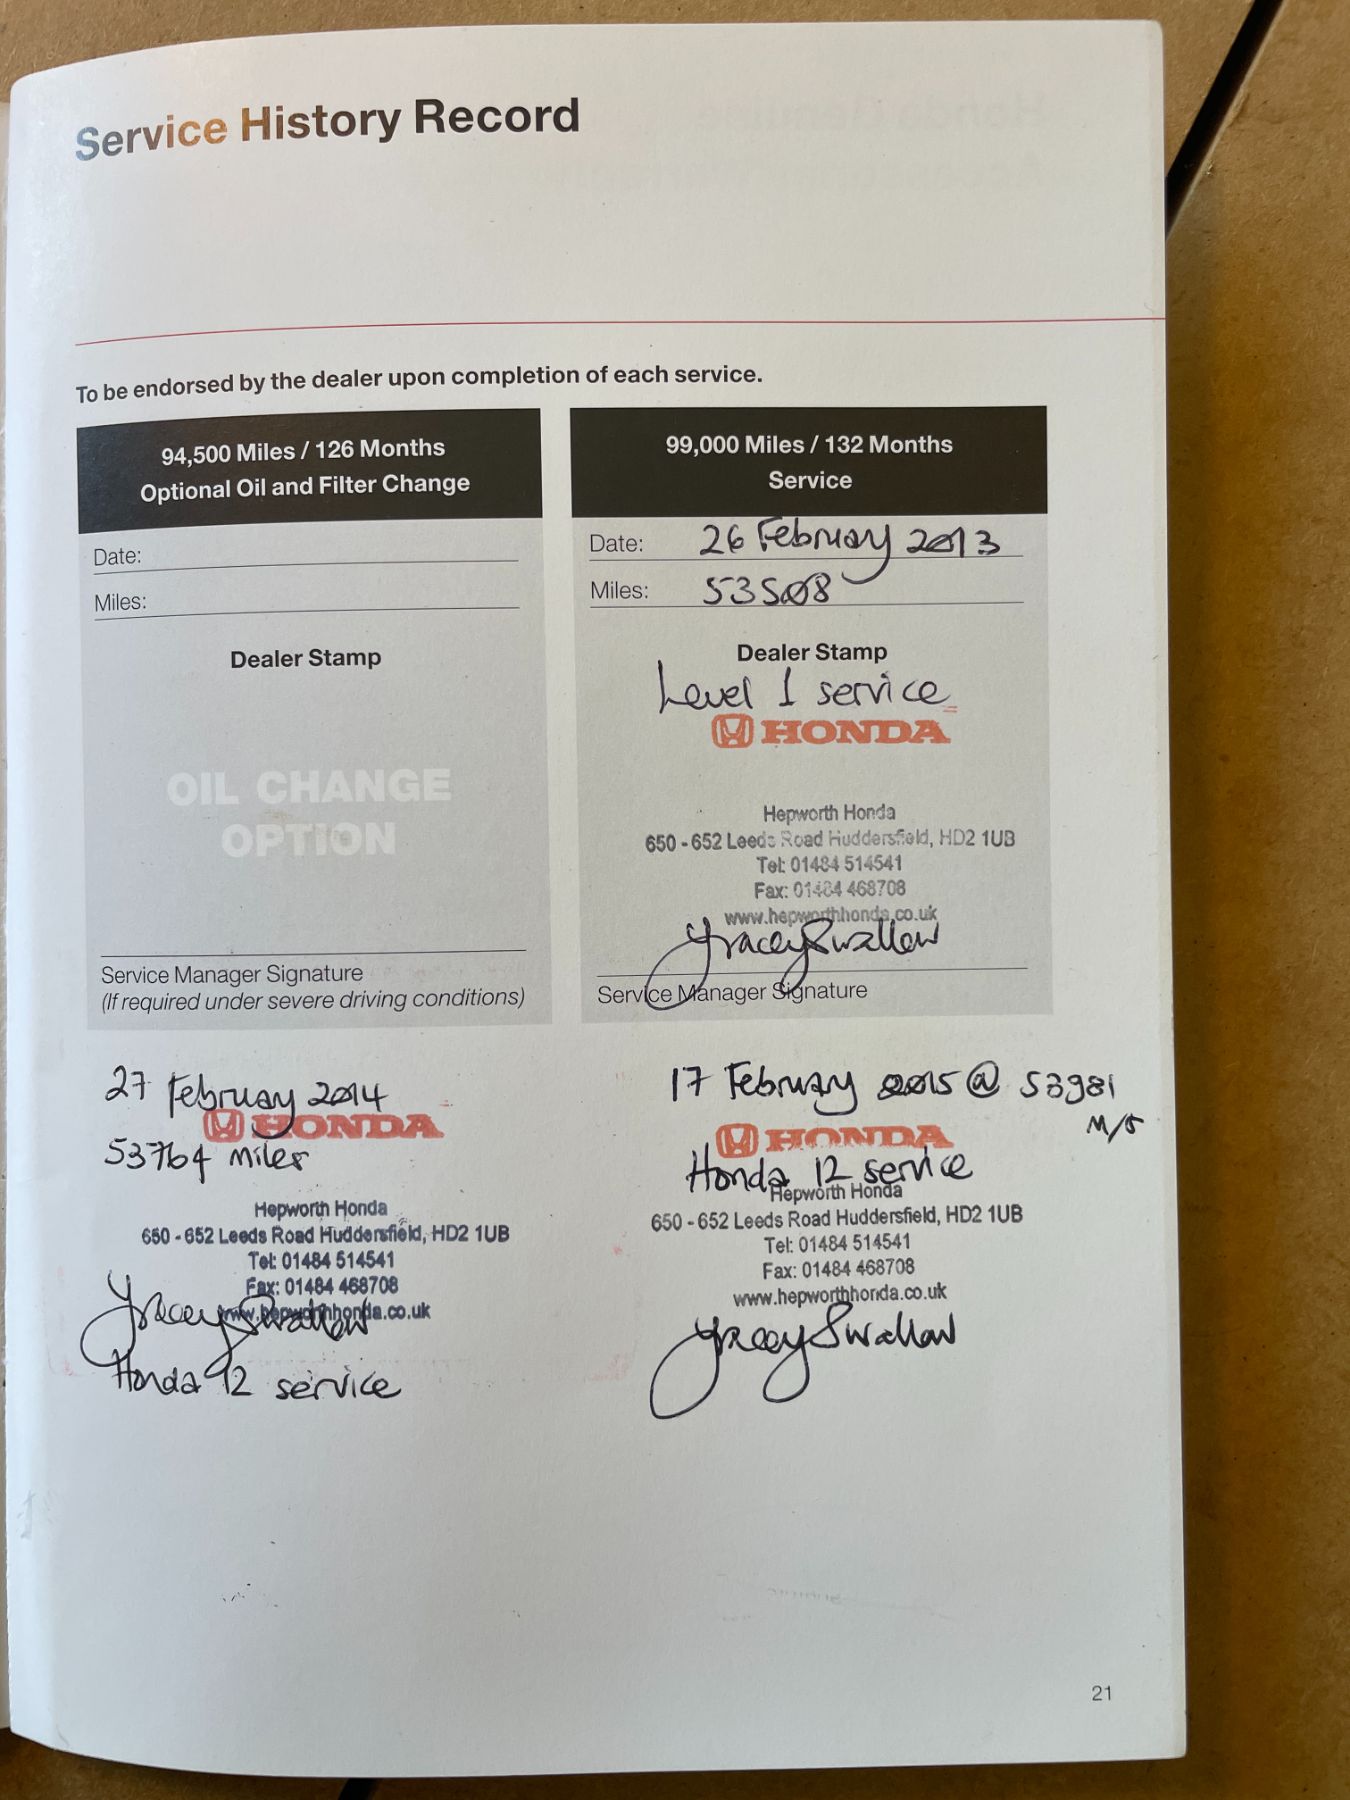 Service History Record
To be endorsed by the dealer upon completion of each service.
94,500 Miles / 126 Months
Optional Oil and Filter Change
Date:
Miles:
Dealer Stamp
OIL CHANGE
OPTION
Service Manager Signature
(If required under severe driving conditions)
99,000 Miles / 132 Months
Service
Date: 26 February 2013
Miles: 53508
Dealer Stamp
Level 1 service
HONDA
Hepworth Honda
650 - 652 Leeds Road Huddersfield, HD2 1UB
Tel: 01484 514541
Fax: 01484 468708
www.hepworthhonda.co.uk
Tracey Swallow
Service Manager Signature
27 February 2014
HONDA
53764 miles
Hepworth Honda
650 - 652 Leeds Road Huddersfield, HD2 1UB
Tel: 01484 514541
Fax: 01484 468708
www.hepworthhonda.co.uk
Tracey Swallow
Honda 12 service
17 February 2015 @ 53981
M/S
HONDA
Honda 12 service
Hepworth Honda
650 - 652 Leeds Road Huddersfield, HD2 1UB
Tel: 01484 514541
Fax: 01484 468708
www.hepworthhonda.co.uk
Tracey Swallow
21